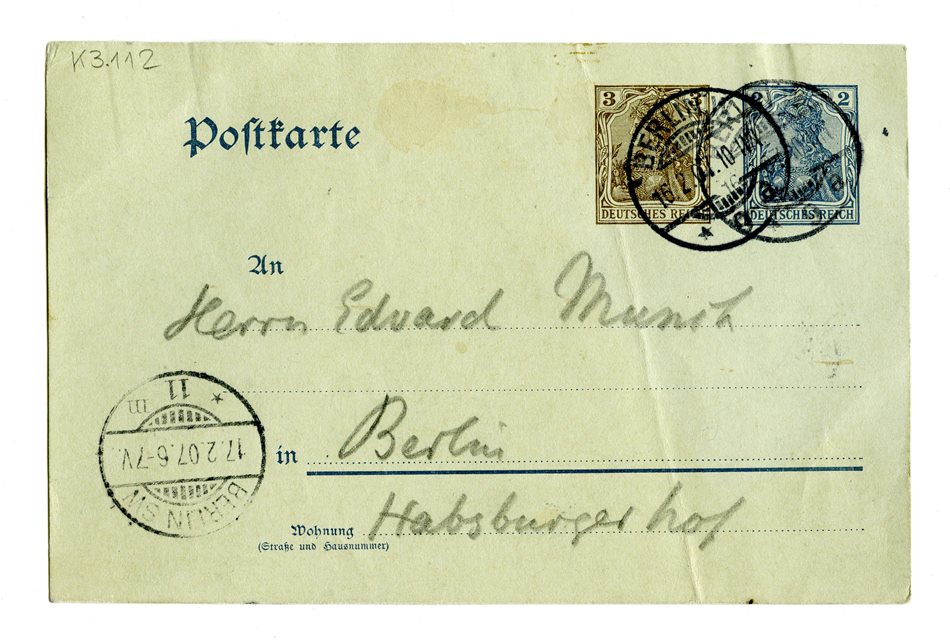 K3.112
Postkarte
3 2
DEUTSCHES REICH DEUTSCHES REICH
BERLIN
16.2.07. 10-11V
An
Herrn Edvard Munch
11
m
17.2.07.6-7V.
BERLIN SW
in Berlin
Wohnung Habsburger hof
(Straße und Hausnummer)